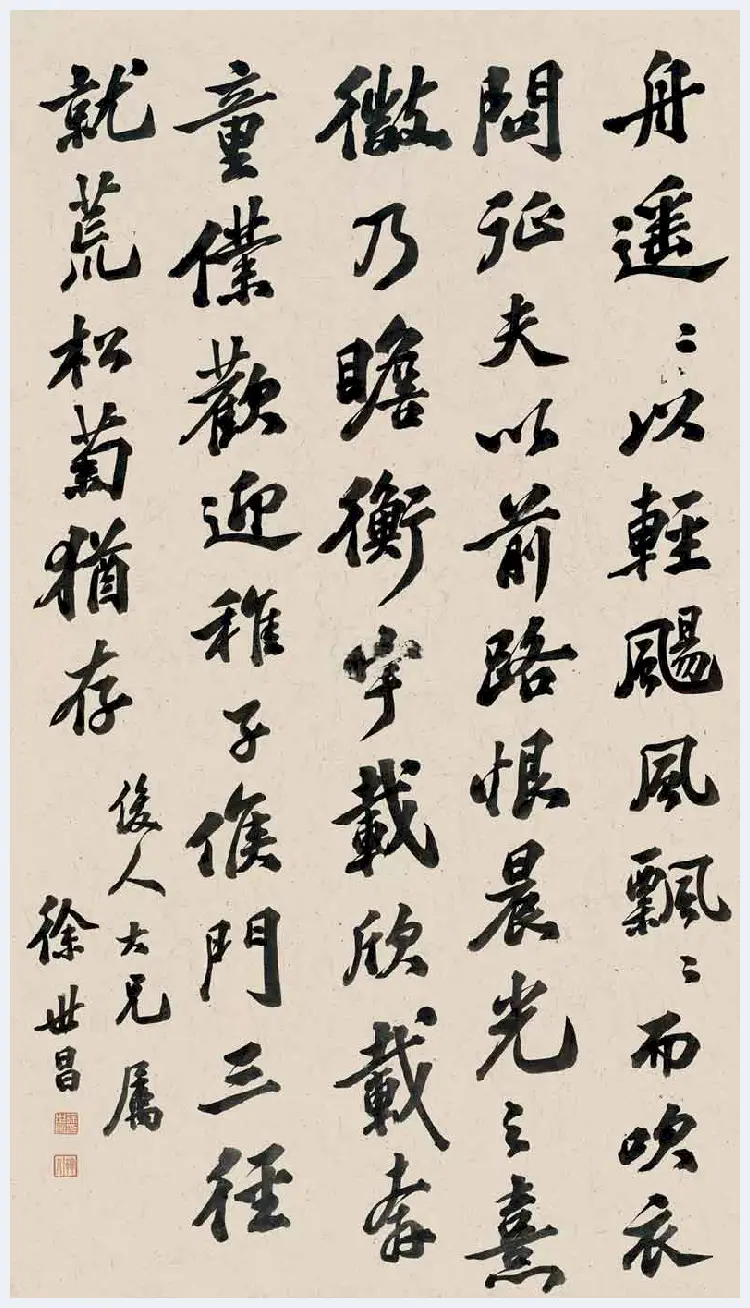 舟遥〻以輕颺風飄〻而吹衣
問征夫以前路恨晨光之熹
微乃瞻衡宇載欣載奔
童僕歡迎稚子候門三徑
就荒松菊猶存
俊人大兄屬
徐世昌